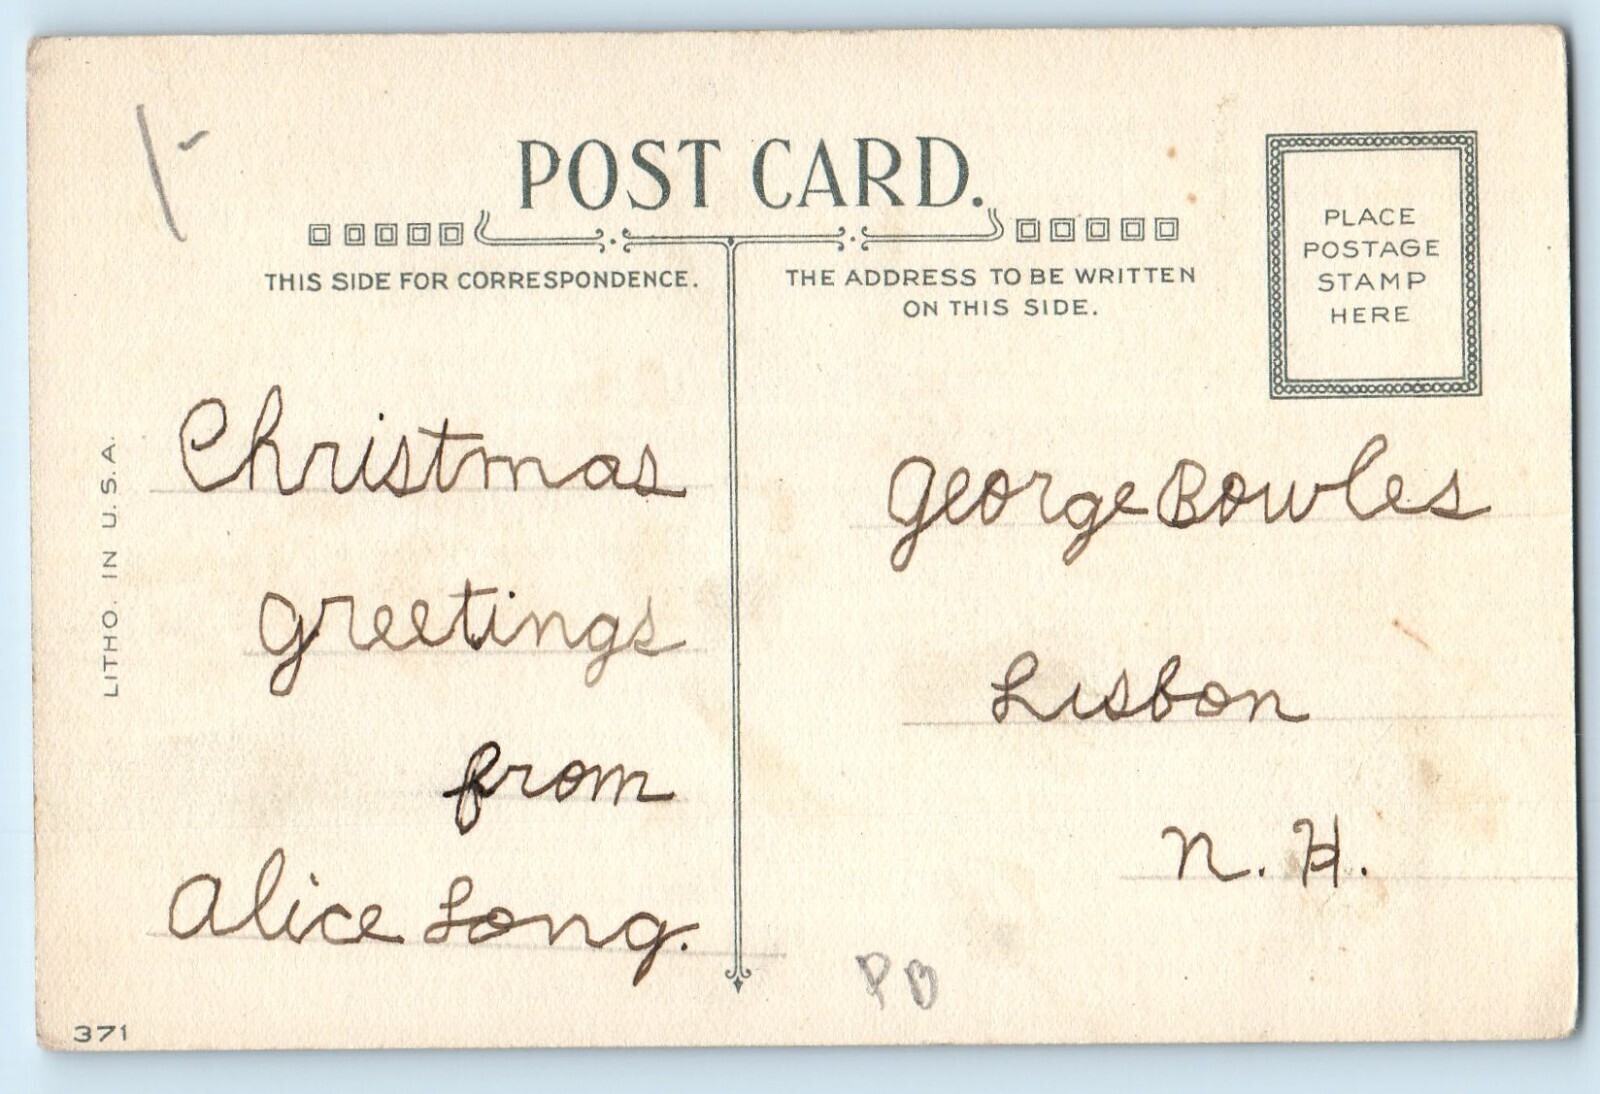 POST CARD.
THIS SIDE FOR CORRESPONDENCE.
THE ADDRESS TO BE WRITTEN
ON THIS SIDE.
PLACE
POSTAGE
STAMP
HERE
Christmas
greetings
from
Alice Long.
George Bowles
Lisbon
N. H.
PO
LITHO. IN U.S.A.
371